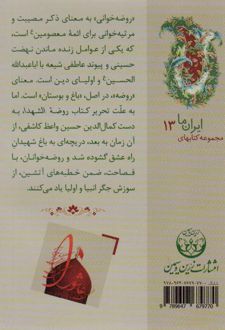 «روضه‌خوانی» به معنای ذکر مصیبت و
مرثیه‌خوانی برای ائمهٔ معصومین؏ است
که یکی از عوامل زنده ماندن نهضت
حسینی و پیوند عاطفی شیعه با اباعبدالله
الحسین؏ و اولیای دین است. معنای
«روضه»، در اصل، «باغ و بوستان» است. اما
به علّت تحریر کتاب روضة الشهدا، به
دست کمال‌الدین حسین واعظ کاشفی، از
آن زمان به بعد، دریچه‌ای به باغ شهیدان
راه عشق گشوده شد و روضه‌خوانان، با
فصاحت، ضمن خطبه‌های آتشین، از
سوزش جگر انبیا و اولیا یاد می‌کنند.
ایران ما ۱۳
مجموعه کتابهای
انتشارات زرین و سیمین
9 789647 679770